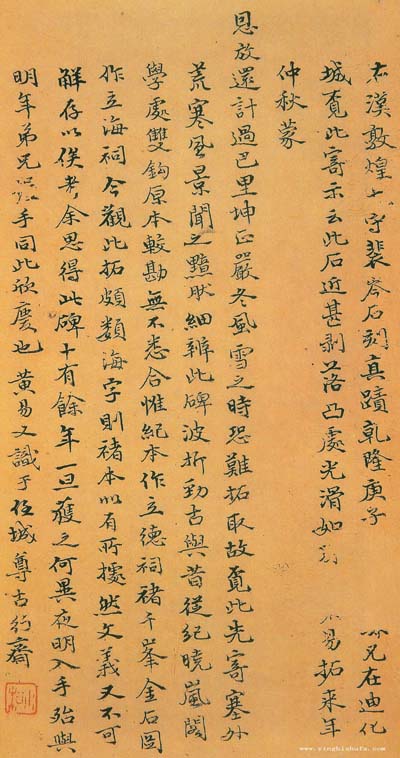 右漢敦煌太守裴岑石刻真蹟乾隆庚子 兄在迪化
城覓此寄示云此石近甚剥落凸處光滑如 不易拓來年
仲秋蒙
恩放還計過巴里坤正嚴冬風雪之時恐難拓取故覓此先寄塞外
荒寒風景聞之黯然細辨此碑波折勁古與昔從紀曉嵐閣
學處雙鈎原本較勘無不悉合惟紀本作立德祠褚千峯金石圖
作立海祠今觀此拓頗類海字則褚本似有所據然文義又不可
解存以俟考余思得此碑十有餘年一旦獲之何異夜明入手殆與
明年弟兄握手同此欣慶也 黃易又識于任城尊古行齋
www.yingbishufa.com